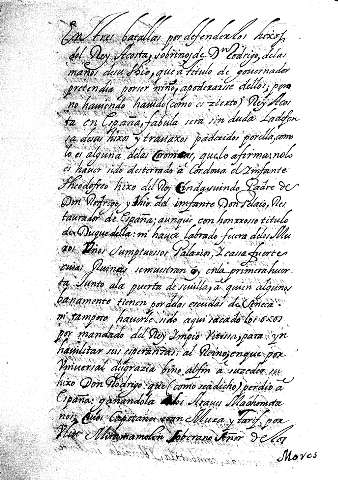 En tres batallas por defender los hixos
del Rey Acosta, sobrinos de Dn Rodrigo, de las
manos de su tio, que a titulo de governador
pretendia por ser niños, apoderarse dellos; pero
no haviendo havido (como es cierto) Rey Acos
ta en España, fabula sera sin duda la defen
ca de sus hixos y travaxos padecidos por ella, como
lo es alguna de las Coronicas, que lo afirma; no lo
es haver sido desterrado a Cordova el Infante
Theodofredo hixo del Rey Cindasuindo Padre de
Don Rodrigo, y tio del infante Don Pelaio, Res
taurador de España; aunque con honrroso titulo
de Duque della: ni haver labrado fuera de los Mu
ros Unos sumptuosos Palacios, i casa fuerte
cuias Ruinas se muestran en la primera huer
ta Junto a la puerta de sevilla, a quien algunos
vanamente tienen por las escuelas de Seneca
ni tampoco haverle sido aqui sacado los oxos
por mandado del Rey Impio Vitissa, para yn
havilitar sus esperanzas, al Reino, en que por
Universal desgrazia vino al fin a suzeder su
hixo Don Rodrigo, que (como se a dicho) perdio a
España: ganandola los Araves Machometa
nos, Cuios Capitanes eran Muza, y Tarif, por
Ulit Miramamolin Soberano Señor de los
Moros